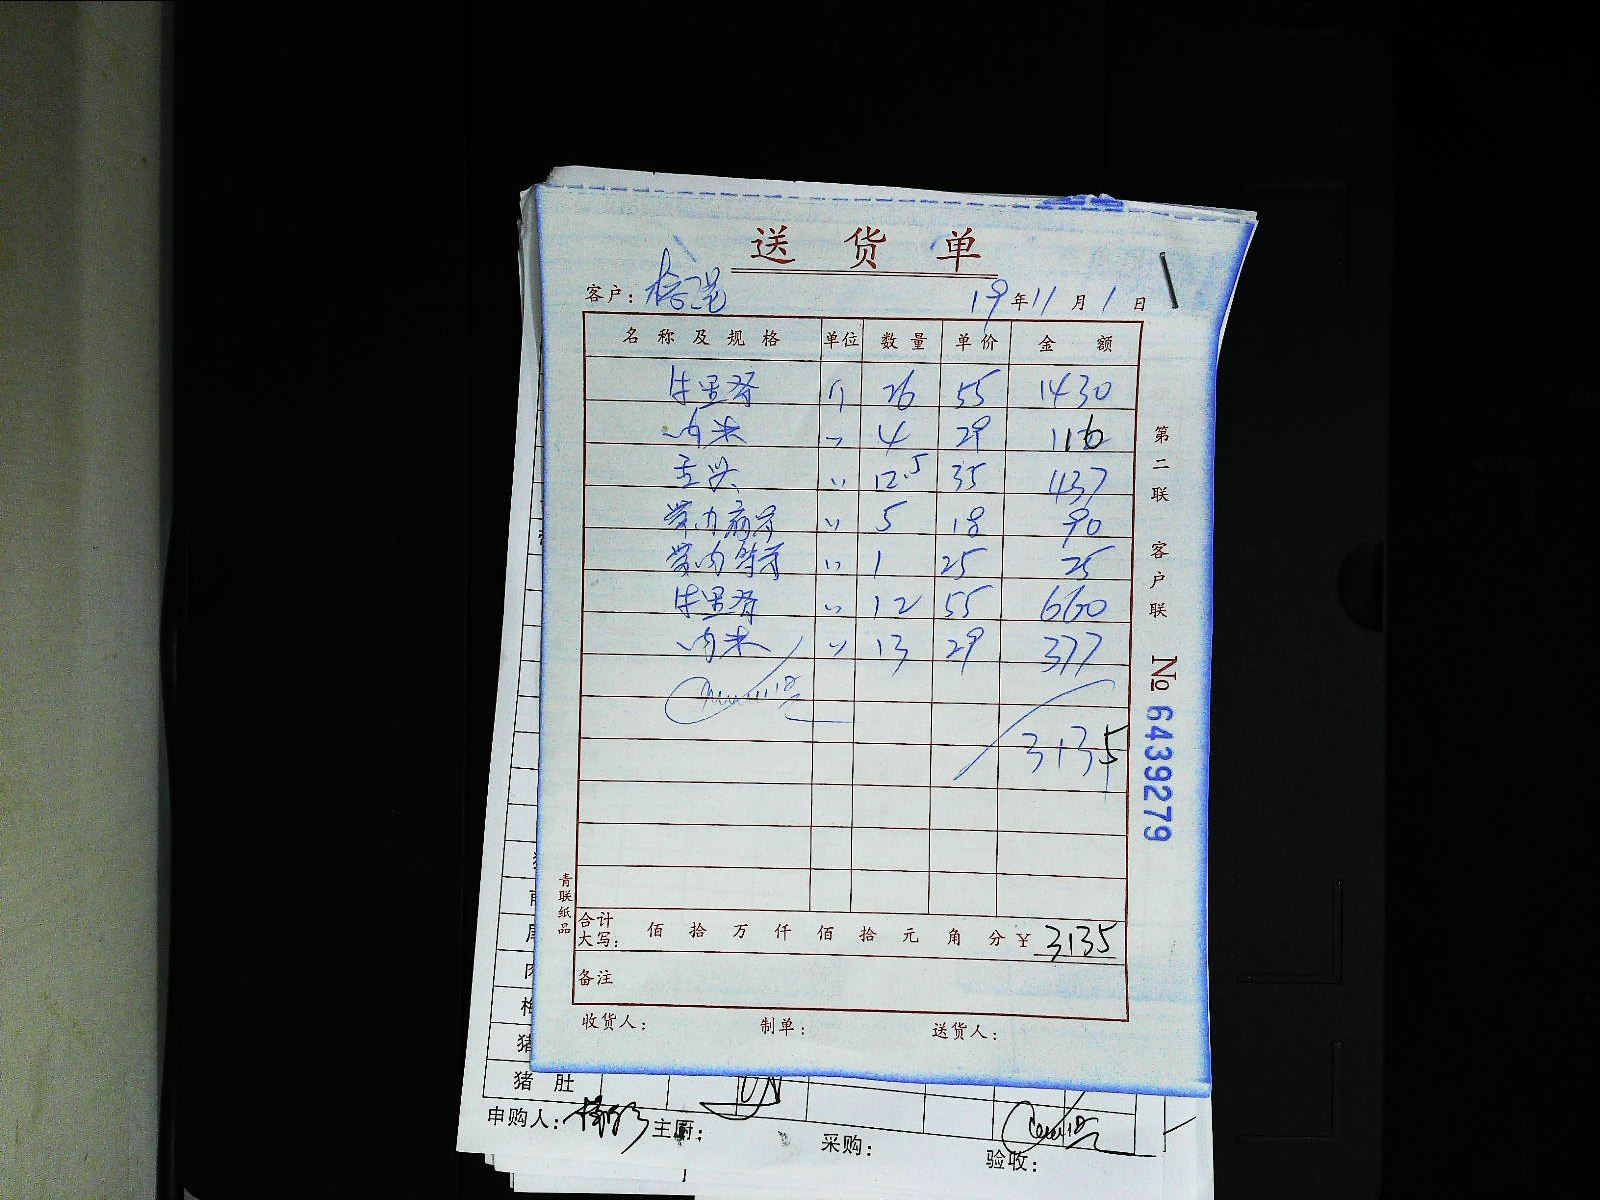 送货单
客户: 19年11月1日
名称及规格 单位 数量 单价 金额
牛里脊 斤 26 55 1430
肉米 〃 4 29 116
〃 12.5 35 437
〃 5 18 90
带肉 〃 1 25 25
牛里脊 〃 12 55 660
肉米 〃 13 29 377
3135
合计
大写: 佰 拾 万 仟 佰 拾 元 角 分 ¥ 3135
备注
收货人: 制单: 送货人:
第二联 客户联
№ 6439279
青联纸品
猪
猪肚
申购人: 主厨: 采购: 验收: